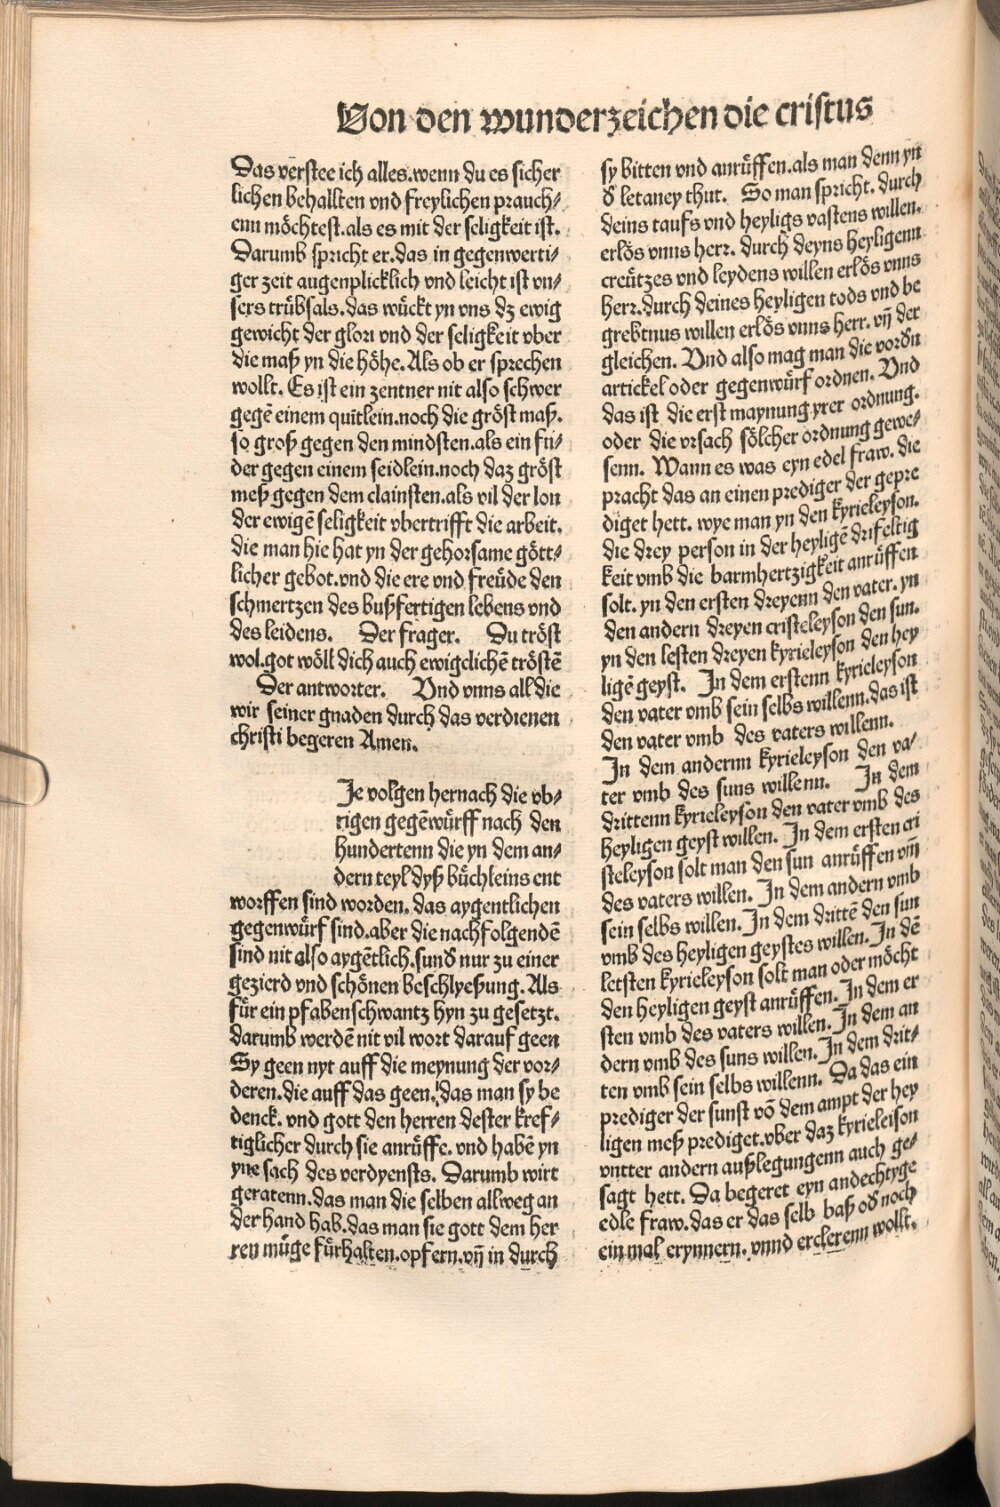 Von den wunderzeichen die cristus
Das verstee ich alles.wenn du es sicher
lichen behallten vnd freylichen prauch⸗
enn möchtest.als es mit der seligkeit ist.
Darumb spricht er.das in gegenwerti⸗
ger zeit augenplicklich vnd leicht ist vn⸗
sers trübsals.das wückt yn vns dz ewig
gewicht der glori vnd der seligkeit vber
die maß yn die höhe.Als ob er sprechen
wollt. Es ist ein zentner nit also schwer
gegē einem quitlein.noch die gröst maß.
so groß gegen den mindsten.als ein fů⸗
der gegen einem seidlein.noch daz gröst
meß gegen dem clainsten.als vil der lon
der ewigē seligkeit vbertrifft die arbeit.
die man hie hat yn der gehorsame gött⸗
licher gebot.vnd die ere vnd freüde den
schmertzen des bußfertigen lebens vnd
des leidens. Der frager. Du tröst
wol.got wöll dich auch ewigclichē tröstē
Der antworter. Vnd vnns all die
wir seiner gnaden durch das verdienen
christi begeren Amen.
Je volgen hernach die vb⸗
rigen gegēwürff nach den
hundertenn die yn dem an⸗
dern teyl dyß büchleins ent
worffen sind worden. das aygentlichen
gegenwürf sind.aber die nachfolgendē
sind nit also aygētlich.sunđ nur zu einer
gezierd vnd schönen beschlyeßung. Als
für ein pfabenschwantz hyn zu gesetzt.
darumb werdē nit vil wort darauf geen
Sy geen nyt auff die meynung der vor⸗
deren.die auff das geen. das man sy be
denck. vnd gott den herren dester kref⸗
tiglicher durch sie anrüffe. vnd habē yn
yne sach des verdyensts. Darumb wirt
geratenn.das man die selben allweg an
der hand hab.das man sie gott dem her
ren müge fürhalten.opfern.vn̄ in durch
sy bitten vnd anrüffen.als man denn yn
đ letaney thut. So man spricht. durch
deins taufs vnd heyligs vastens willen.
erlös vnns herr. durch deyns heyligenn
creützes vnd leydens willen erlös vnns
herr.durch deines heyligen tods vnd be
grebtnus willen erlös vnns herr. vn̄ der
gleichen. Vnd also mag man die vorđn
artickel oder gegenwürf ordnen. Vnd
das ist die erst maynung yrer ordnung.
oder die vrsach sölcher ordnung gewe⸗
senn. Wann es was eyn edel fraw. die
pracht das an einen prediger der gepre
diget hett. wye man yn den kyrieleyson.
die drey person in der heyligē drifeltig
keit vmb die barmhertzigkeit anrüffen
solt. yn den ersten dreyenn den vater. yn
den andern dreyen cristeleyson den sun.
yn den lesten dreyen kyrieleyson den hey
ligē geyst. In dem erstenn kyrieleyson
den vater vmb sein selbs willenn.das ist
den vater vmb des vaters willenn.
In dem andernn kyrieleyson den va⸗
ter vmb des suns willenn. In dem
drittenn kyrieleyson den vater vmb des
heyligen geyst willen. In dem ersten cri
steleyson solt man den sun anrüffen vm̄
des vaters willen. In dem andern vmb
sein selbs willen. In dem drittē den sun
vmb des heyligen geystes willen. In dē
letsten kyrieleyson solt man oder möcht
den heyligen geyst anrüffen. In dem er
sten vmb des vaters willen. In dem an
dern vmb des suns willen. In dem drit⸗
ten vmb sein selbs willenn. Da das ein
prediger der sunst vō dem ampt der hey
ligen meß prediget.vber daz kyrieleison
vntter andern außlegungenn auch ge⸗
sagt hett. Da begeret eyn andechtyge
edle fraw.das er das selb baß ođ noch
ein mal erynnern. vnnd erclerenn wollt.